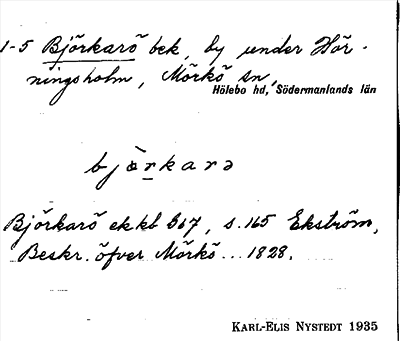 1-5 Björkarö bek. by under Hör-
ningsholm, Mörkö sn,
Hölebo hd, Södermanlands län
bjærkarə
Björkarö ekkl 667, s. 165 Ekström,
Beskr. öfver Mörkö... 1828.
KARL-ELIS NYSTEDT 1935